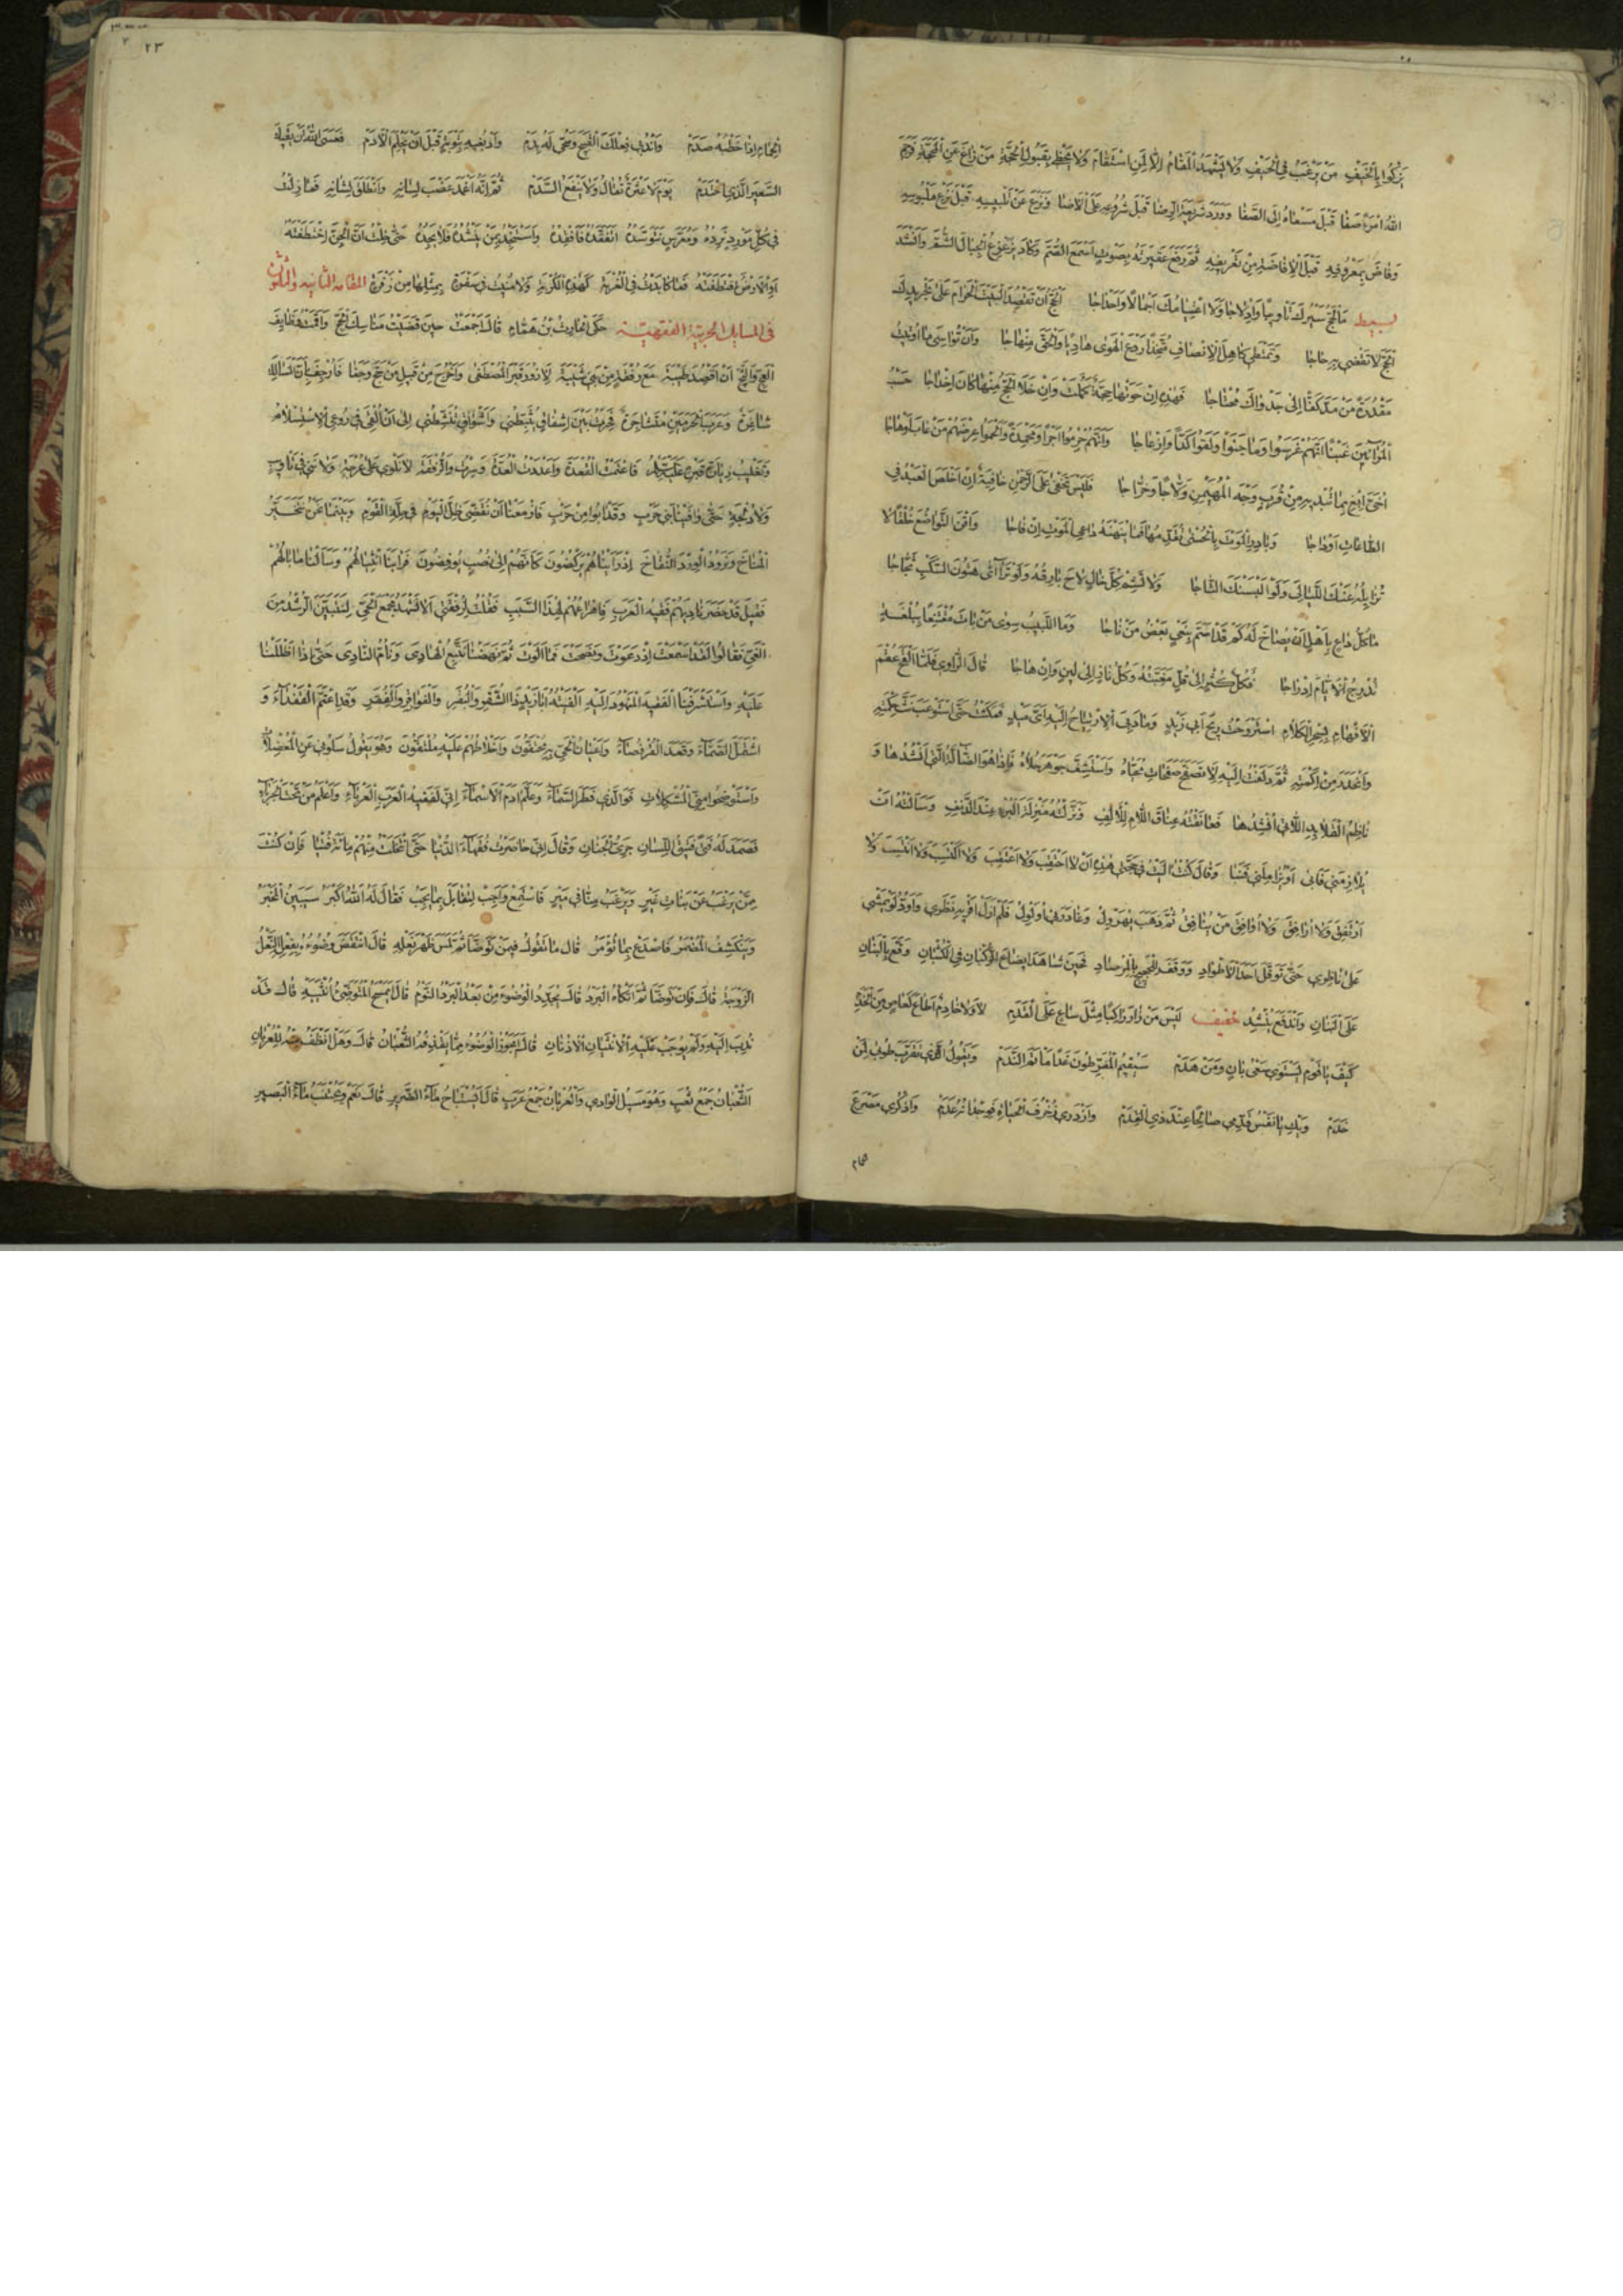 يزكوا بالخيف من يرغب في الحيف ولا يشهد المقام الا لمن استقام ولا يحظى بقبول الحجة من زاغ عن المحجة فرحم
الله امرأ صفا قبل مسعاه الى الصفا وورد شريعة الرضا قبل شروعه على الاضا ونزع عن تلبيسه قبل نزع ملبوسه
وفاض بمعروفه قبل الافاضة من تعريفه ثم رفع عقيرته بصوت اسمع الصم وكاد يزعزع الجبال الشم وانشد
بسيط ما الحج سيرك تأويبا وادلاجا ولا اعتيامك اجمالا واحداجا الحج ان تقصد البيت الحرام على تجريدك
الحج لا تقضي به حاجا وتمتطي كاهل الانصاف متخذا ردع الهوى هاديا والحق منهاجا وان تواسي ما اوتيت
مقدرة من مد كفا الى جدواك محتاجا فهذه ان حوتها حجة كملت وان خلا الحج منها كان اخداجا حسب
المرائين غبنا انهم غرسوا وما جنوا ولقوا كدا وازعاجا وانهم حرموا اجرا ومحمدة والحموا عرضهم من عاب او هاجا
اخي فابغ بما تبديه من قرب وجه المهيمن ولاجا وخراجا فليس تخفى على الرحمن خافية ان اخلص العبد في
الطاعات او داجا وبادر الموت بالحسنى تقدمها فما ينهنه داعي الموت ان فاجا واقن التواضع خلقا لا
تزايله عنك الليالي ولو البسنك التاجا ولا تشم كل خال لاح بارقه ولو تراءى هتون السكب ثجاجا
ما كل داع باهل ان يصاخ له كم قد اصم بنعي بعض من ناجا وما اللبيب سوى من بات مقتنعا ببلغة
تدرج الايام ادراجا فكل كثر الى قل مغبته وكل ناز الى لين وان هاجا قال الراوي فلما القح عقم
الافهام بسحر الكلام استروحت ريح ابي زيد ومادبي الارتياح اليه اي ميد فمكثت حتى استوعب نث حكمته
وانحدر من اكمته ثم دلفت اليه لاتصفح صفحات محياه واستشف جوهر حلاه فاذا هو الضالة التي انشدها و
ناظم القلايد اللاتي انشدها فعانقته عناق اللام للالف ونزلته منزلة البرء عند الدنف وسالته ان
يلازمني فابى او يزاملني فنبا وقال كنت اليت في حجتي هذه ان لا احتقب ولا اعتقب ولا اكتسب ولا انتسب ولا
ارتفق ولا ارافق ولا اوافق من ينافق ثم ذهب يهرول وغادرني اولول فلم ازل اقريه نظري واود لو يمشي
على ناظري حتى توقل احد الاطواد ووقف للحجيج بالمرصاد فحين شاهد ايضاع الركبان في الكثبان وقع بالبنان
على البنان واندفع ينشد خفيف ليس من زار راكبا مثل ساع على القدم لا ولا خادم اطاع كعاص من الخدم
كيف يا قوم يستوي سعي بان ومن هدم سيقيم المفرطون غدا مأتم الندم ويقول الذي تقرب طوبى لمن
خدم ويك يا نفس قدمي صالحا عند ذي القدم وازدري زخرف الحياة فوجدانه عدم واذكري مصرع
الحمام
٢٣
الحمام اذا خطبه صدم واندبي فعلك القبيح وسحي له بدم وادبغيه بتوبة قبل ان يحلم الادم فعسى الله ان يقيك
السعير الذي احتدم يوم لا عثرة تقال ولا ينفع السدم ثم انه اغمد عضب لسانه وانطلق لشانه فما زلت
في كل مورد نرده ومعرس نتوسده اتفقده فافقده واستنجد بمن ينشده فلا يجده حتى خلت ان الجن اختطفته
او الارض اقتطفته فما كابدت في الغربة كهذه الكربة ولا منيت في سفرة بمثلها من زفرة المقامة الثانية والثلثون
في المسايل العربية الفقهية حكى الحارث بن همام قال اجمعت حين قضيت مناسك الحج واقمت وظايف
العج والثج ان اقصد طيبة مع رفقة من بني شيبة لازور قبر المصطفى واخرج من قبيل من حج وجفا فارجف بان المسالك
شاغرة وعرب الحرمين متشاجرة فحرت بين اشفاق يثبطني واشواق تنشطني الى ان القي في روعي الاستسلام
وتغليب زيارة قبره عليه السلم فاعتمت القعدة واعددت العدة وسرت والرفقة لا نلوي على عرجة ولا نني في تأويب
ولا دلجة حتى وافينا بني حرب وقد ابوا من حرب فازمعنا ان نقضي ظل اليوم في حلة القوم وبينما نحن نتخير
المناخ ونرود الورد النقاخ اذ رايناهم يركضون كانهم الى نصب يوفضون فرابنا انثيالهم وسالنا ما بالهم
فقيل قد حضر ناديهم فقيه العرب فاهراعهم لهذا السبب فقلت لرفقتي الا نشهد مجمع الحي لنتبين الرشد من
الغي فقالوا لقد اسمعت اذ دعوت ونصحت فما الوت ثم نهضنا نتبع الهادي ونؤم النادي حتى اذا اظللنا
عليه واستشرفنا الفقيه المنهود اليه الفيته ابا زيد ذا الشقر والبقر والفواقر والفقر وقد اعتم القفداء و
اشتمل الصماء وقعد القرفصاء واعيان الحي به محتفون واخلاطهم عليه ملتفون وهو يقول سلوني عن المعضلات
واستوضحوا مني المشكلات فوالذي فطر السماء وعلم ادم الاسماء اني لفقيه العرب العرباء واعلم من تحت الجرباء
فصمد له فتى فتيق اللسان جري الجنان وقال اني حاضرت فقهاء الدنيا حتى انتخلت منهم ماية فتيا فان كنت
ممن يرغب عن بنات غير ويرغب منا في مير فاستمع واجب لتقابل بما يجب فقال له الله اكبر سيبين المخبر
وينكشف المضمر فاصدع بما تؤمر قال ما تقول فيمن توضأ ثم لمس ظهر نعله قال انتقض وضوءه بفعله النعل
الزوجة قال فان توضأ ثم اتكاه البرد قال يجدد الوضوء من بعد البرد النوم قال ايمسح المتوضئ انثييه قال قد
ندب اليه ولم يوجب عليه الانثيان الاذنان قال ايجوز الوضوء مما يقذفه الثعبان قال وهل انظف منه للعربان
الثعبان جمع ثعب وهو مسيل الوادي والعربان جمع عرب قال ايستباح ماء الضرير قال نعم ويجتنب ماء البصير